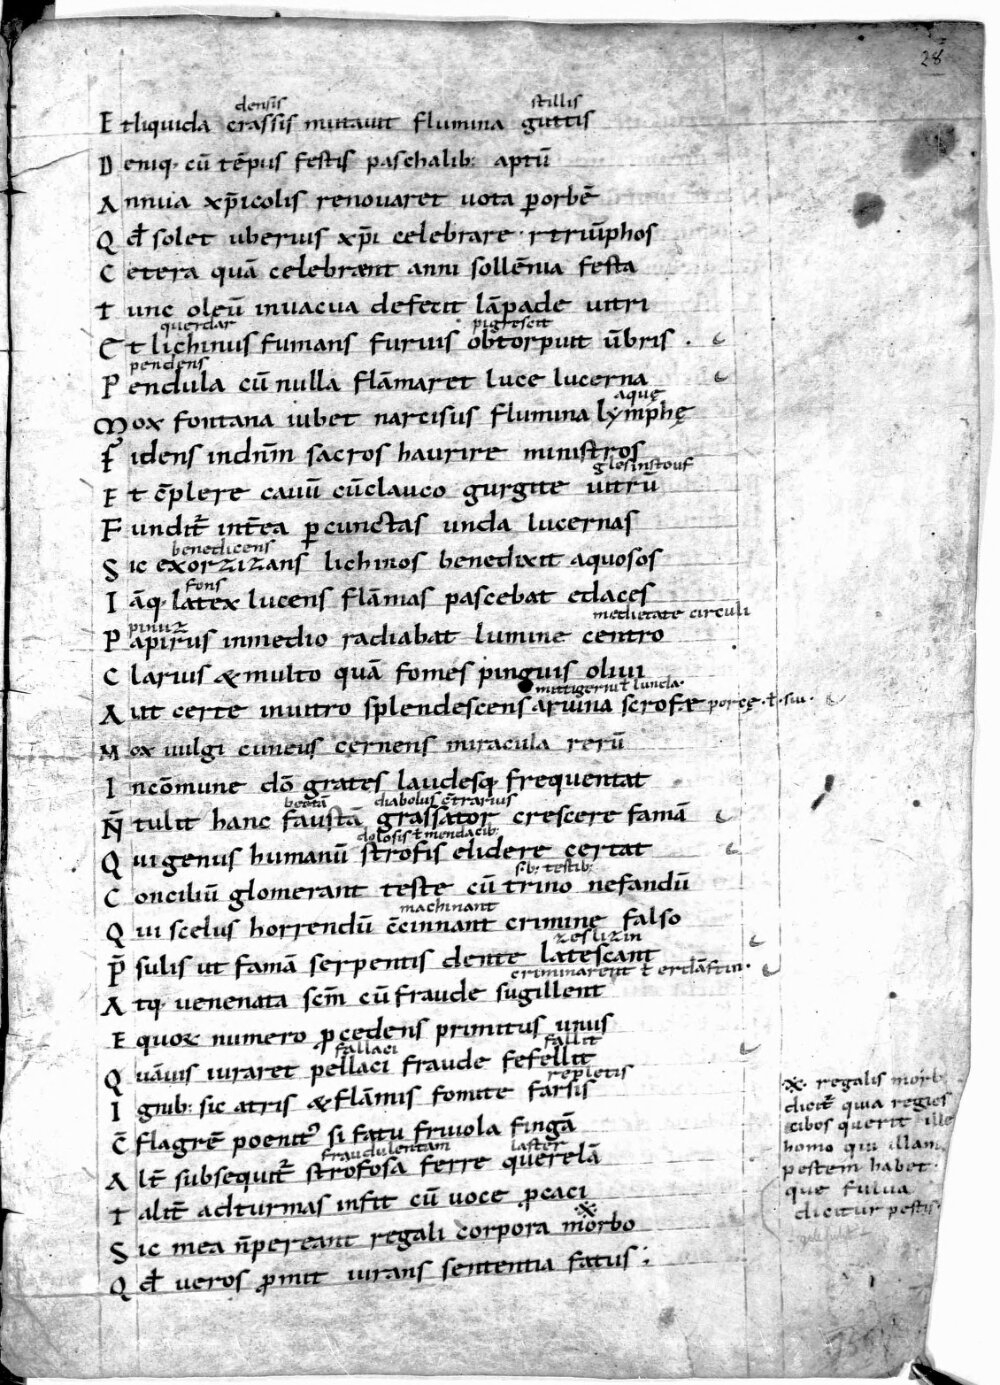 28
densis stillis
E t liquida crassis mutauit flumina guttis
D eniq· cū tēpus festis paschalib: aptū
A nnua xp̄icolis renouaret uota p̱ orbē
Q d̄ solet uberius xp̄i celebrare · r triūphos
C etera quā celebrent anni sollēnia festa
T unc oleū in uacua defecit lāpade uitri
querdar pigrescit
E t lichinus fumans furuus obtorpuit ūbris .
pendens
P endula cū nulla flāmaret luce lucerna
aquę
M ox fontana iubet narcisus flumina lymphę
F idens in dn̄m sacros haurire ministros
glesinstouf
E t c̄plere cauū cū clauco gurgite uitrū
F undit̄ int̄ea p̱ cunctas unda lucernas
benedicens
S ic exorzizans lichinos benedixit aquosos
fons
I āq· latex lucens flāmas pascebat edaces
pinuz medietate circuli
P apirus in medio radiabat lumine centro
C larius & multo quā fomes pinguis oliui
mittigerni ł luncla·
A ut certe in uitro splendescens aruina scrofæ porcę · ł · suu·
M ox uulgi cuneus cernens miracula rerū
I n cōmune dō grates laudesq· frequentat
beatā diabolus c̄trarius
N̄ tulit hanc faustā grassator crescere famā
dolosis ł mendacib:
Q ui genus humanū strofis elidere certat
s·b: testib:
C onciliū glomerant teste cū trino nefandū
machinant
Q ui scelus horrendū c̄cinnant crimine falso
zeslizin
P̄ sulis ut famā serpentis dente latescant
criminarent ł erdāftin·
A tq· uenenata scm̄ cū fraude sugillent
E quoꝝ numero p̱cedens primitus unus
fallaci fallit
Q uāuis iuraret pellaci fraude fefellit
repletis
I gnib: sic atris & flāmis fomite farsis
C̄ flagrē poenit᾽ si fatu friuola fingā
fraudulentam laster
A lt̄ subsequit̄ strofosa ferre querelā
T alit̄ ad turmas infit cū uoce p̱caci
S ic mea n̄ pereant regali corpora morbo
Q d̄ ueros p̱mit iurans sententia fatus ;
regalis morb
dicit̄ quia regios
cibos querit ille
homo qui illam
pestem habet·
que fulua
dicitur pestis·